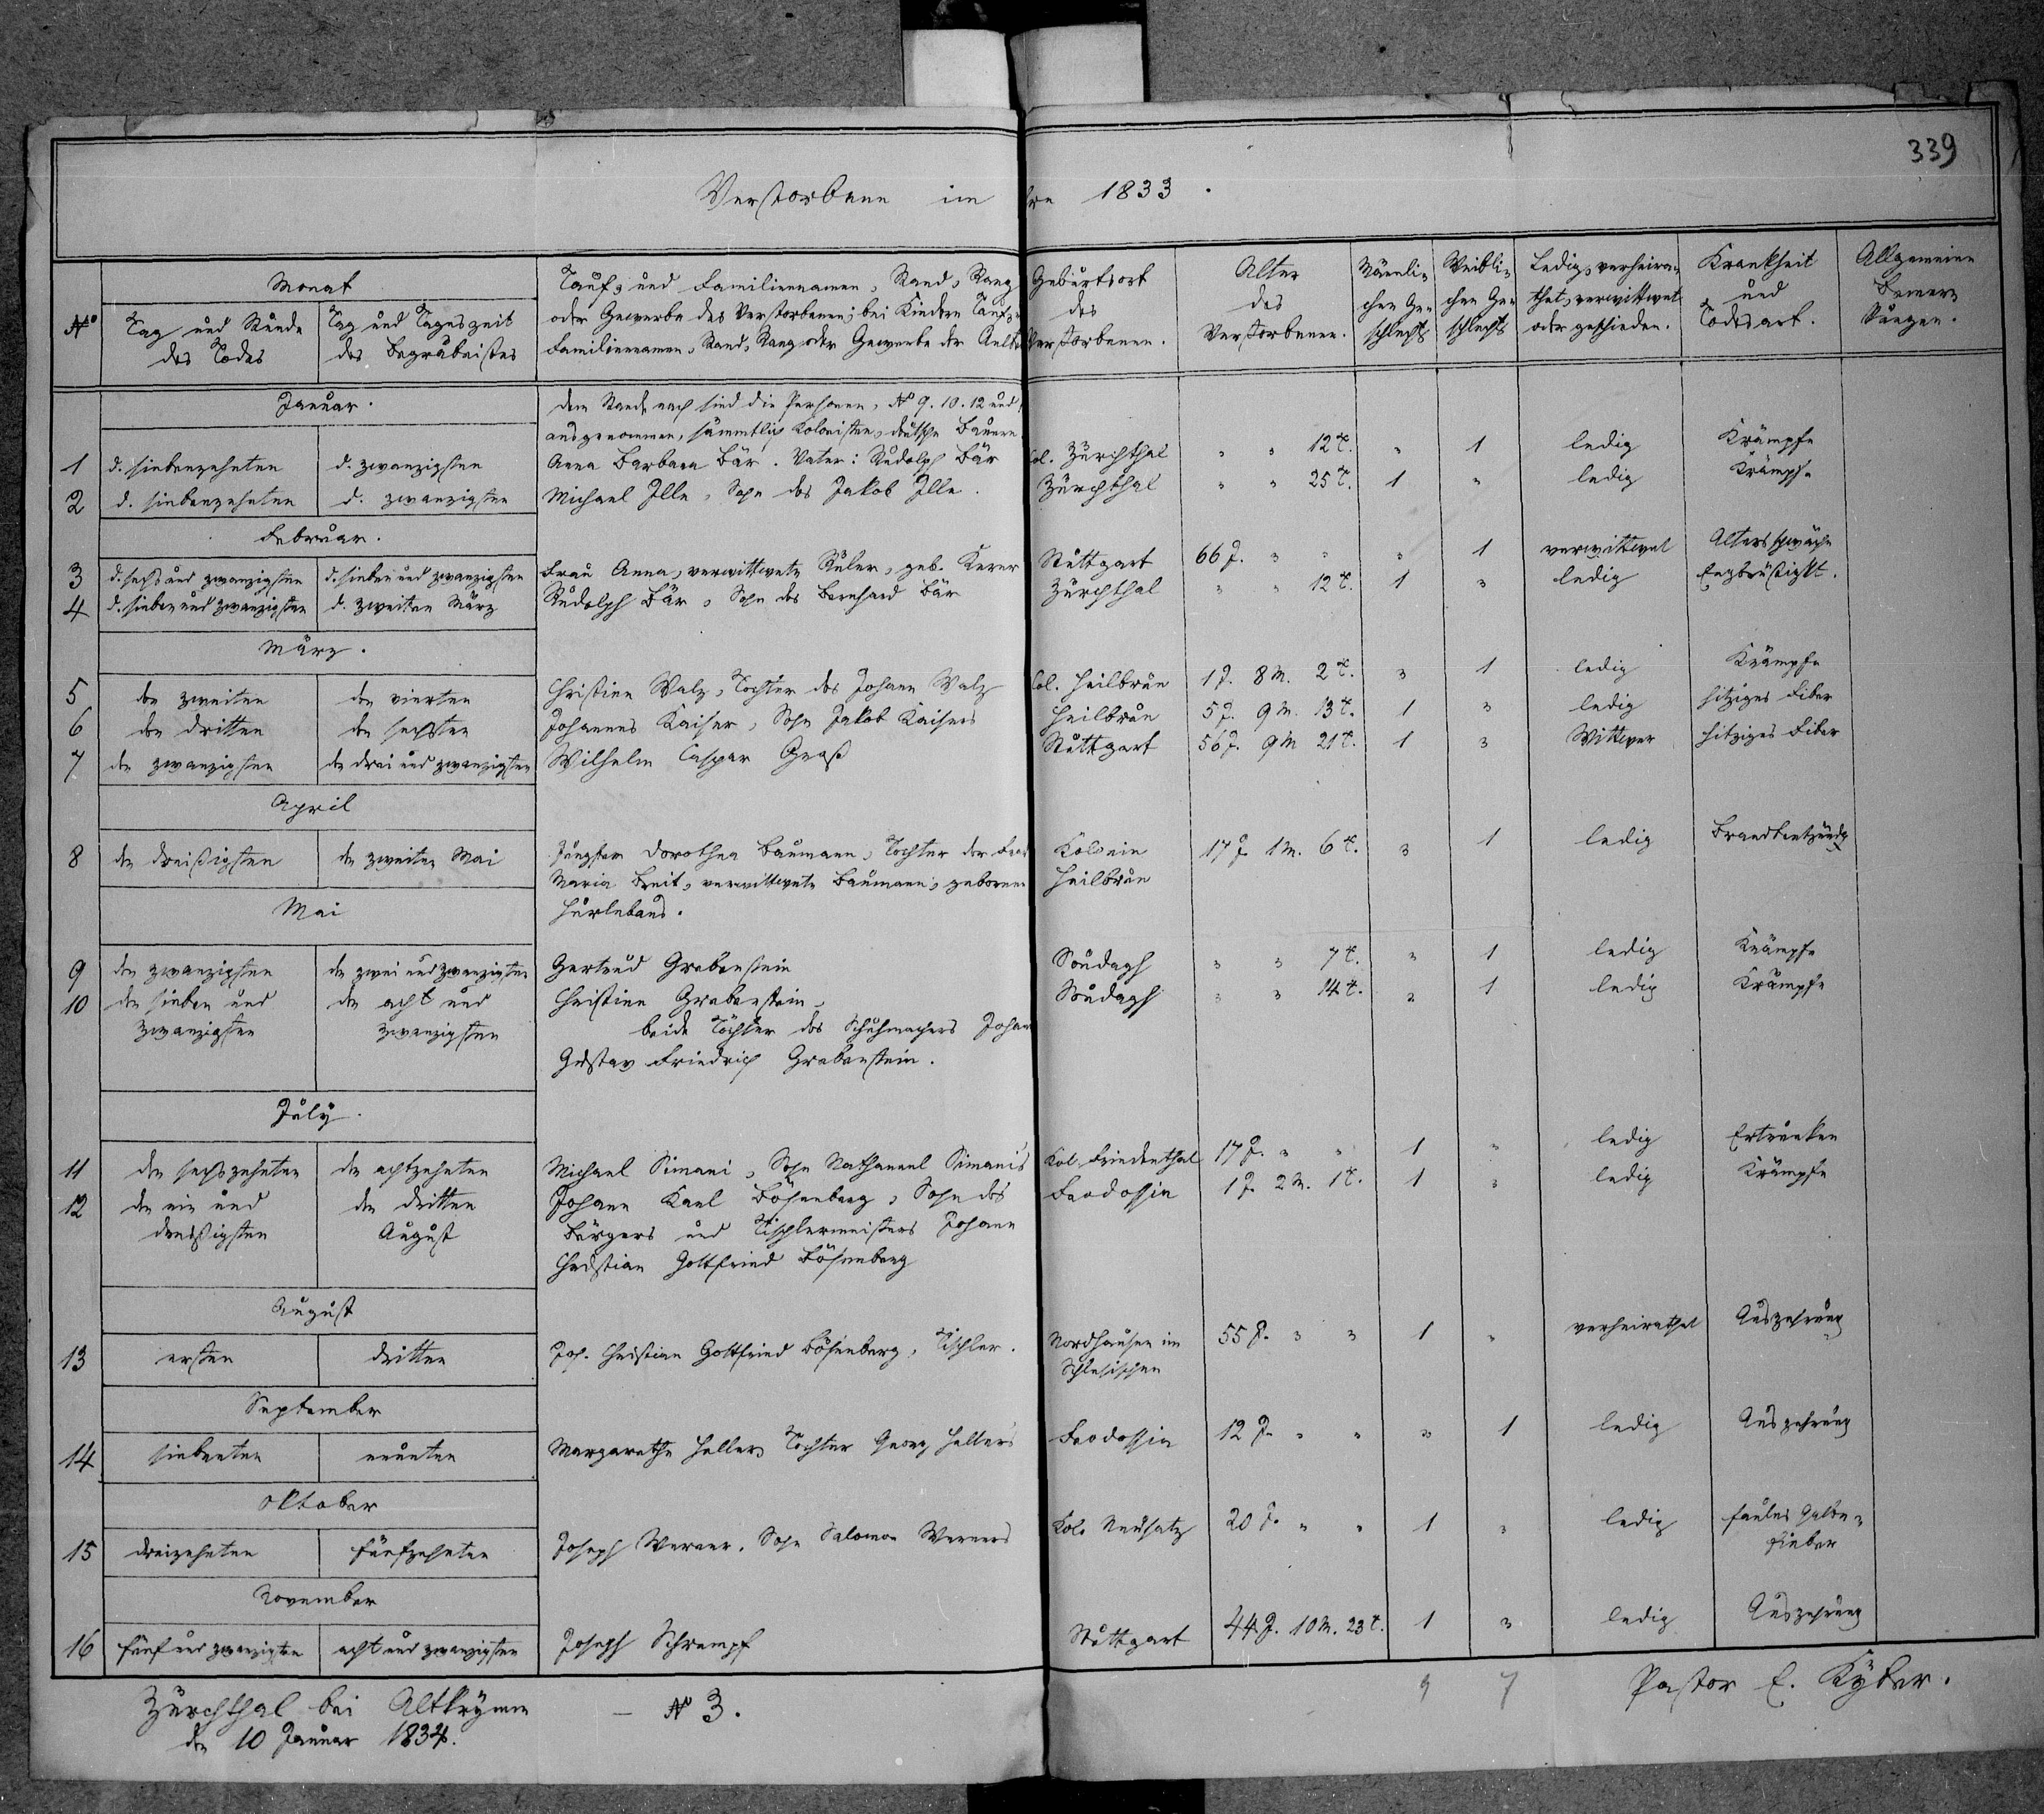 339
Verstorbene im hre 1833.
Monat
No
Tag und Stunde des Todes
Tag und Tageszeit des Begräbnißes
Tauf- und Familiennamen, Stand, Rang
oder Gewerbe des Verstorbenen; bei Kindern Tauf-
Familiennamen, Stand, Rang oder Gewerbe der Aelte
Geburtsort des Verstorbenen.
Alter des Verstorbenen.
Männlichen Geschlechts
Weiblichen Geschlechts
Ledig, verheirathet, verwittwet oder geschieden.
Krankheit und Todesart.
Allgemeine Bemerkungen.
Januar.
dem Stande nach sind die Personen, No 9. 10. 12 und
ausgenommen, sämmtlich Kolonisten, deutsche Bauern
1 d. siebenzehnten d. zwanzigsten Anna Barbara Bär. Vater: Rudolph Bär Col. Zürchthal " " 12 t. " 1 ledig Krämpfe
2 d. siebenzehnten d. zwanzigsten Michael Ille, Sohn des Jakob Ille. Zürchthal " " 25 t. 1 " ledig Krämpfe
Februar.
3 d. sechs und zwanzigsten d. sieben und zwanzigsten Frau Anna, verwittwete Ruler, geb. Kerer Stuttgart 66 J. " " " 1 verwittwet Altersschwäche
4 d. sieben und zwanzigsten d. zweiten März Rudolph Bär, Sohn des Bernhard Bär Zürchthal " " 12 t. 1 " ledig Engbrüstigkt.
März.
5 den zweiten den vierten Christina Walz, Tochter des Johann Walz Col. Heilbrun 1 J. 8 M. 2 t. " 1 ledig Krämpfe
6 den dritten den sechsten Johannes Kaiser, Sohn Jakob Kaisers Heilbrun 5 J. 9 M. 13 t. 1 " ledig hitziges Fiber
7 den zwanzigsten den drei und zwanzigsten Wilhelm Caspar Groß Stuttgart 56 J. 9 M 21 t. 1 " Wittwer hitziges Fiber
April
8 den dreißigsten den zweiten Mai Jungfer Dorothea Baumann, Tochter der Frau Kolonie 17 J 1 M. 6 t. " 1 ledig Brandentzündg
Maria Breit, verwittwete Baumann, geborene Heilbrun
Hurlebaus.
Mai
9 den zwanzigsten den zwei und zwanzigsten Gertrud Grabenstein Soudagh " " 7 t. " 1 ledig Krämpfe
10 den sieben und den acht und Christina Grabenstein, Soudagh " " 14 t. " 1 ledig Krämpfe
zwanzigsten zwanzigsten beide Töchter des Schuhmachers Johan
Gustav Friedrich Grabenstein.
July.
11 den sechszehnten den achtzehnten Michael Simani, Sohn Nathanael Simanis Kol Friedenthal 17 J. " " 1 " ledig Ertrunken
12 den ein und den dritten Johann Karl Bösenberg, Sohn des Feodossia 1 J. 2 M. 1 t. 1 " ledig Krämpfe
dreißigsten August Bürgers und Tischlermeisters Johann
Christian Gottfried Bösenberg
August
13 ersten dritten Joh. Christian Gottfried Bösenberg, Tischler. Nordhausen im 55 J. " " 1 " verheirathet Auszehrung
Schlesischen
September
14 siebenten neunten Margaretha Heller, Tochter Georg Hellers Feodossia 12 J. " " " 1 ledig Auszehrung
Oktober
15 dreizehnten fünfzehnten Joseph Werner, Sohn Salomon Werners Kol. Neusatz 20 J. " " 1 " ledig faules Gallen-
fieber
November
16 fünf und zwanzigsten acht und zwanzigsten Joseph Schrempf Stuttgart 44 J. 10 M. 23 t. 1 " ledig Auszehrung
9 7
Zürchthal bei Altkrymm – No 3. Pastor E. Kyber.
den 10 Januar 1834.